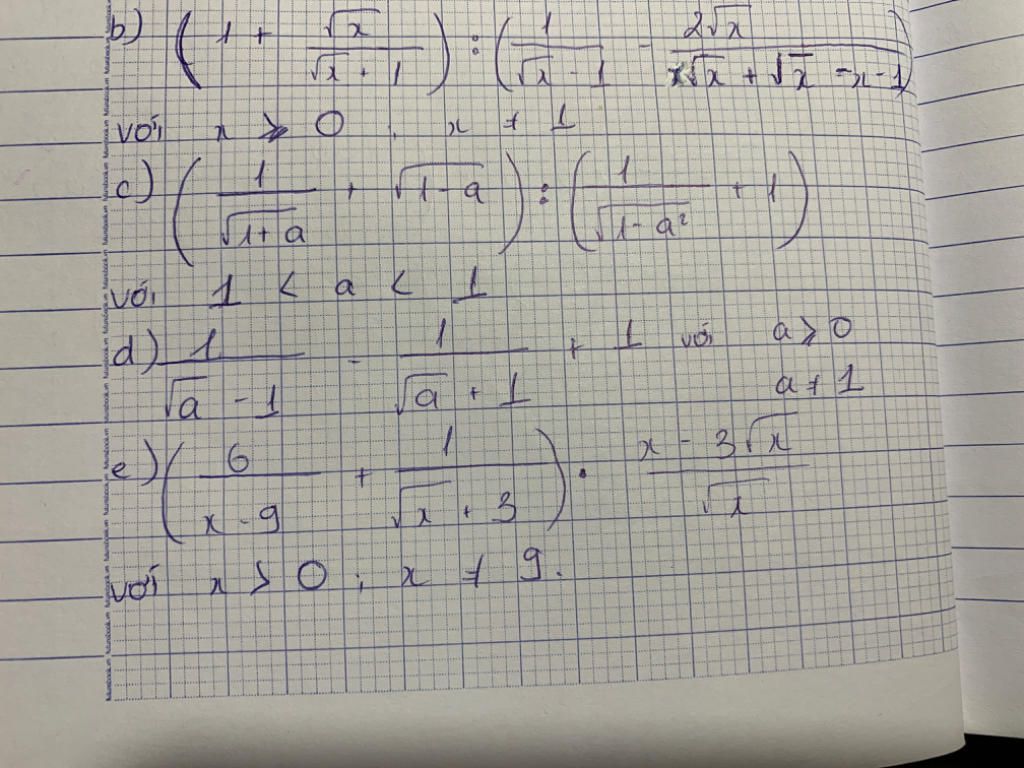 b) (1 + √x/(√x + 1)) : (1/(√x - 1) - 2√x/(x√x + √x - x - 1))
với x ≥ 0, x ≠ 1
c) (1/√(1+a) + √(1-a)) : (1/√(1-a²) + 1)
với 1 < a < 1
d) 1/(√a - 1) - 1/(√a + 1) + 1 với a ≥ 0
a ≠ 1
e) (6/(x - 9) + 1/(√x + 3)) · (x - 3√x)/√x
với x > 0 ; x ≠ 9.